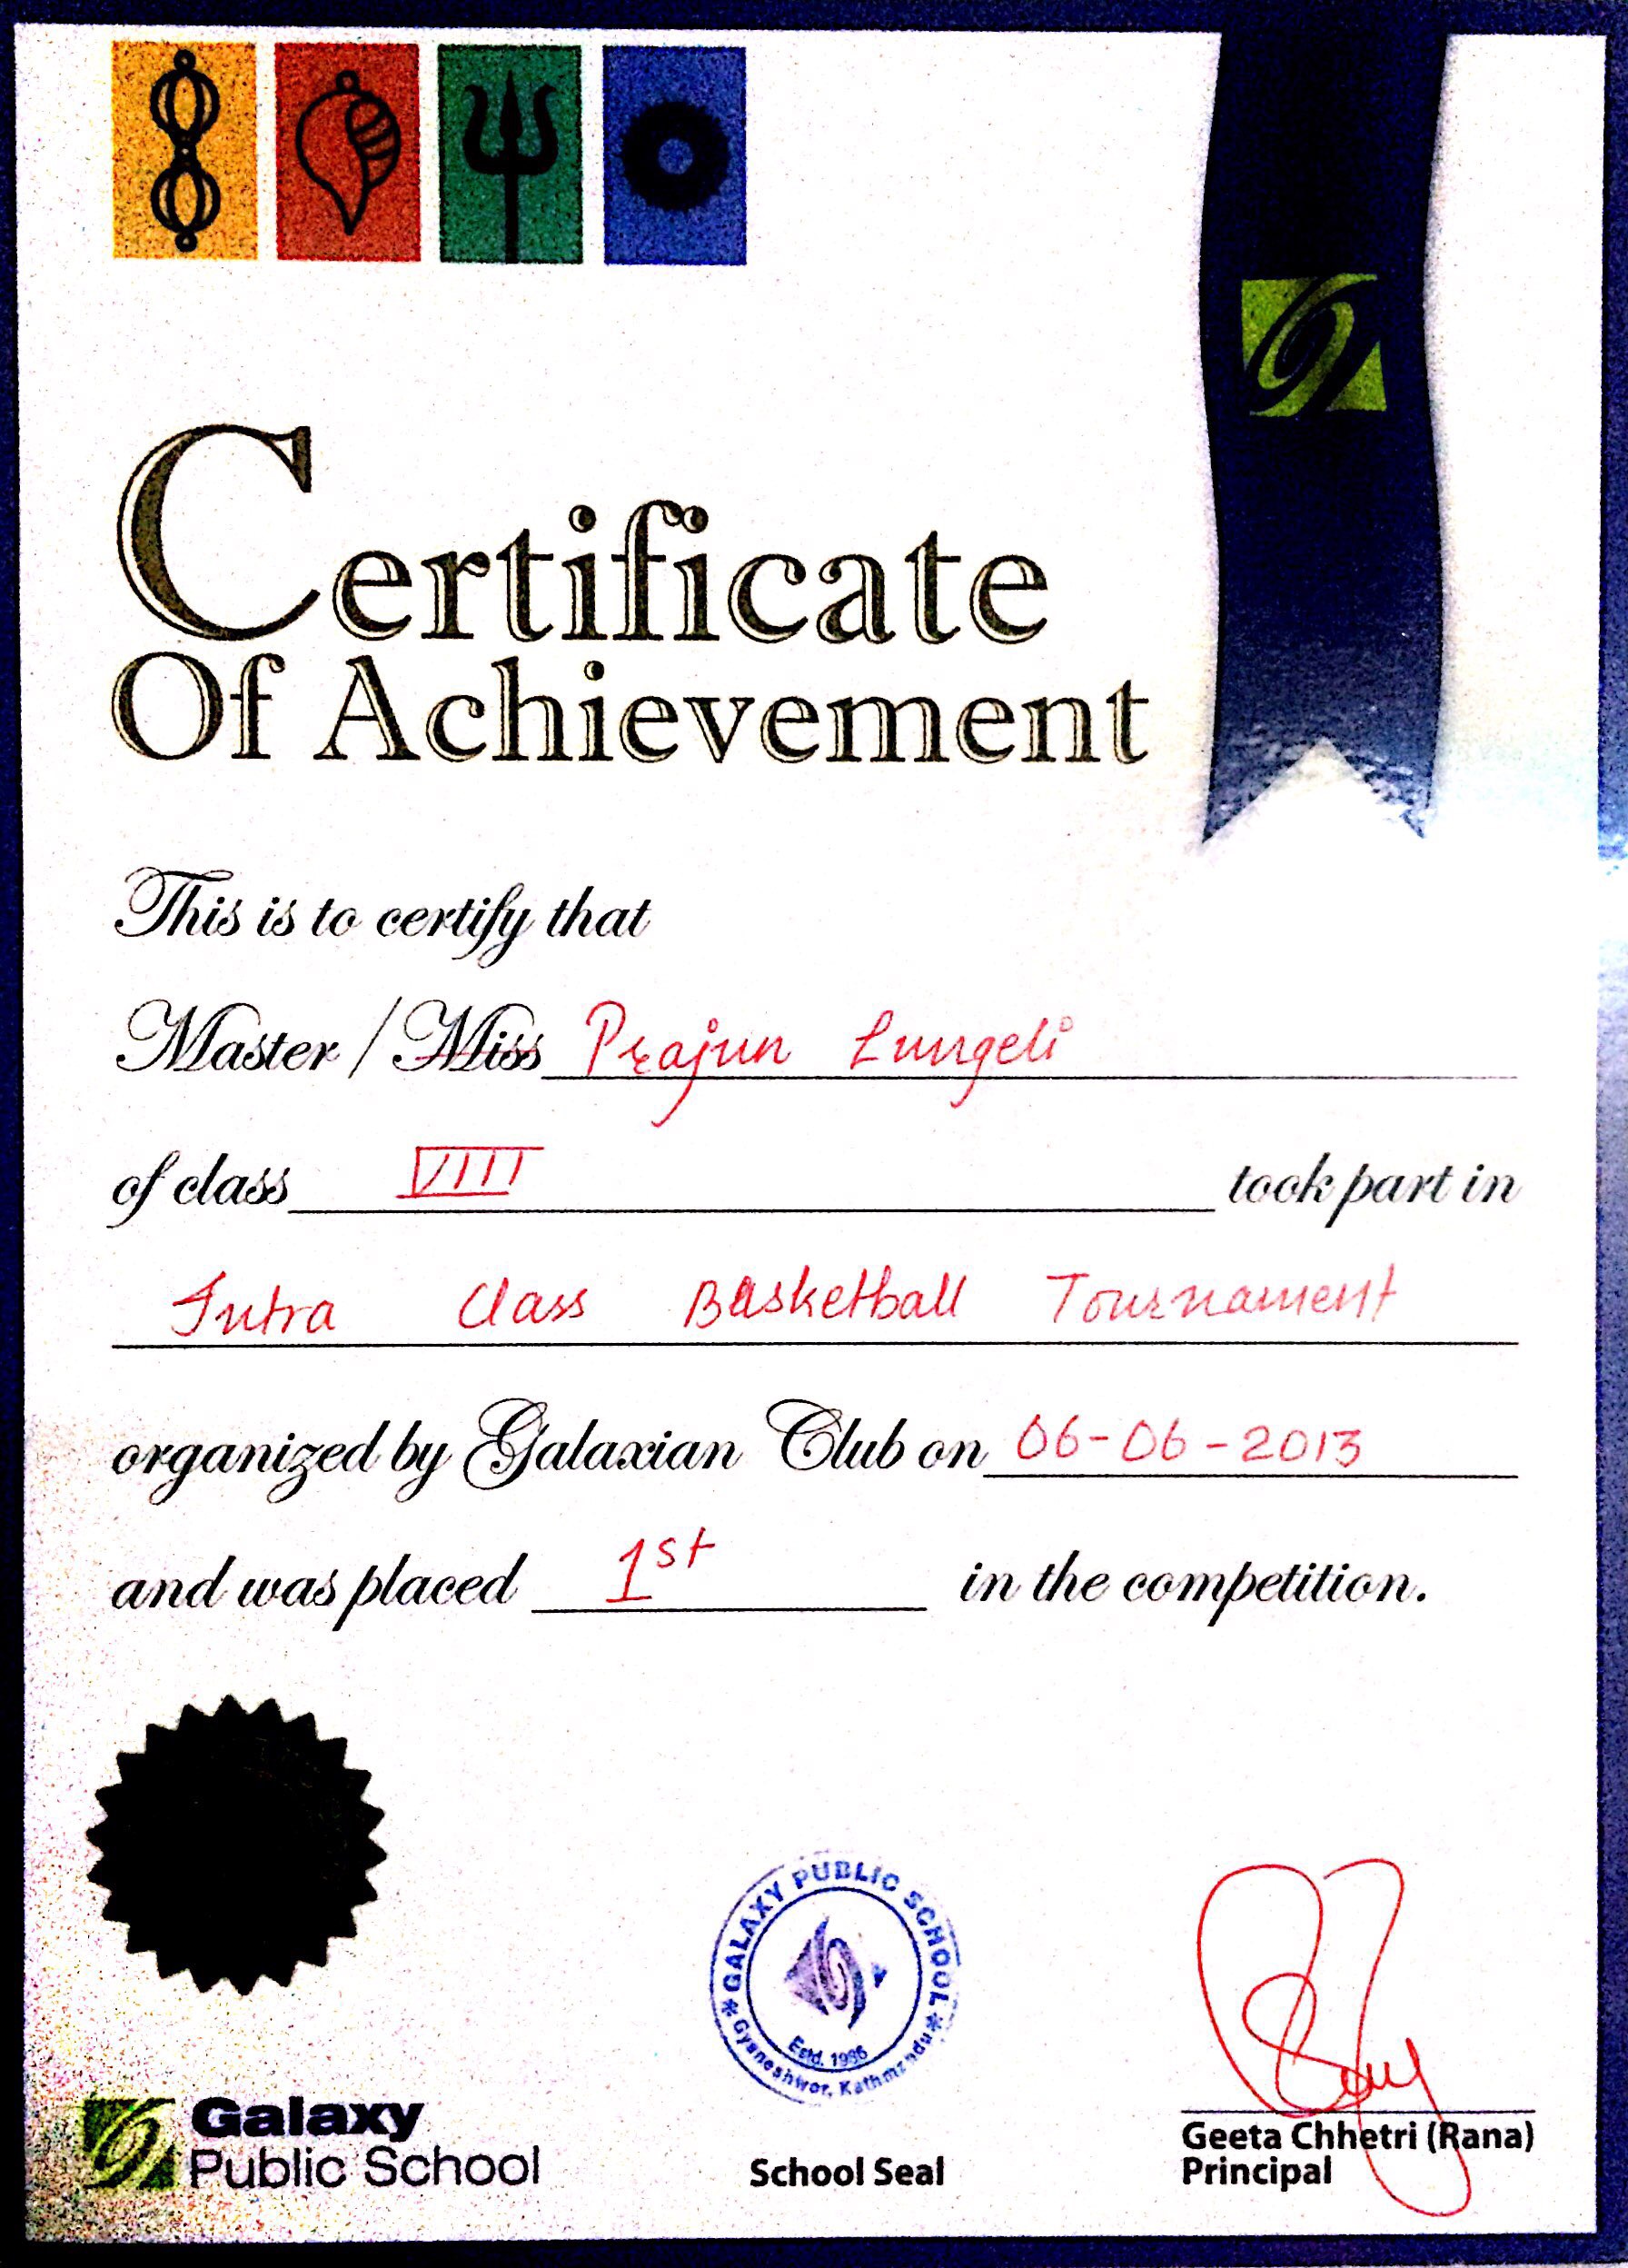 Certificate
Of Achievement
This is to certify that
Master / Miss Prajun Lungeli
of class VIII took part in
Intra Class Basketball Tournament
organized by Galaxian Club on 06-06-2013
and was placed 1st in the competition.
* GALAXY PUBLIC SCHOOL *
Estd. 1986
Gyaneshwor, Kathmandu
Galaxy
Public School
School Seal
Geeta Chhetri (Rana)
Principal